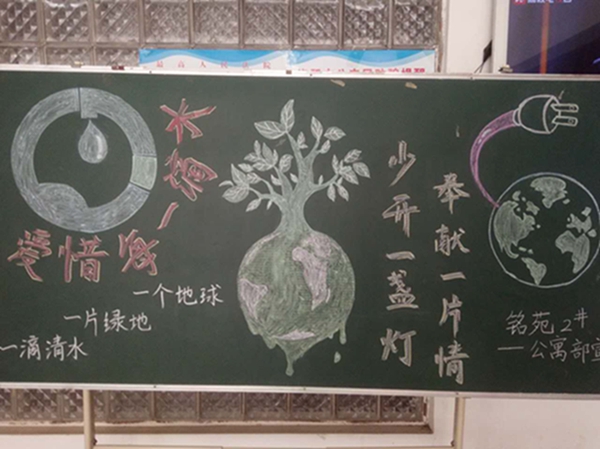 爱惜每一滴水
一个地球
一片绿地
一滴清水
少开一盏灯
奉献一片情
铭苑2#
——公寓部宣